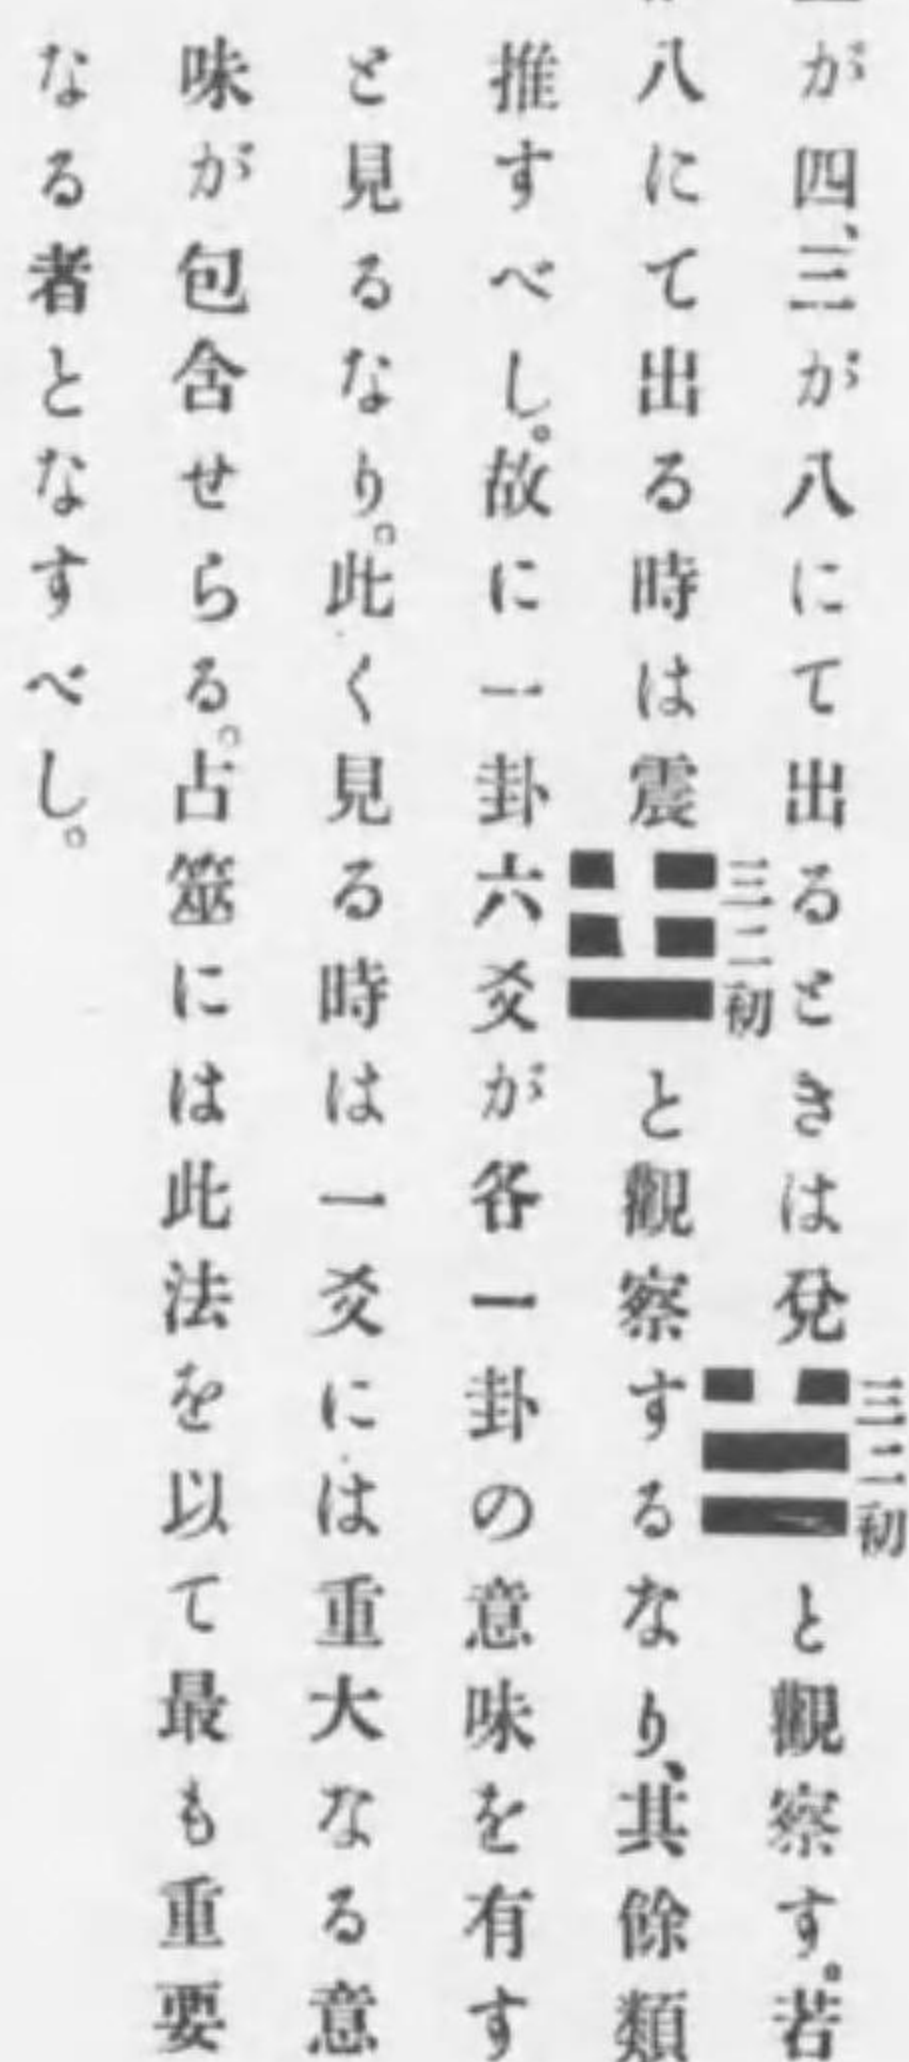 が四、三が八にて出るときは兌☱三二初と觀察す。若
八にて出る時は震☳三二初と觀察するなり、其餘類
推すべし。故に一卦六爻が各一卦の意味を有す
と見るなり。此く見る時は一爻には重大なる意
味が包含せらる。占筮には此法を以て最も重要
なる者となすべし。